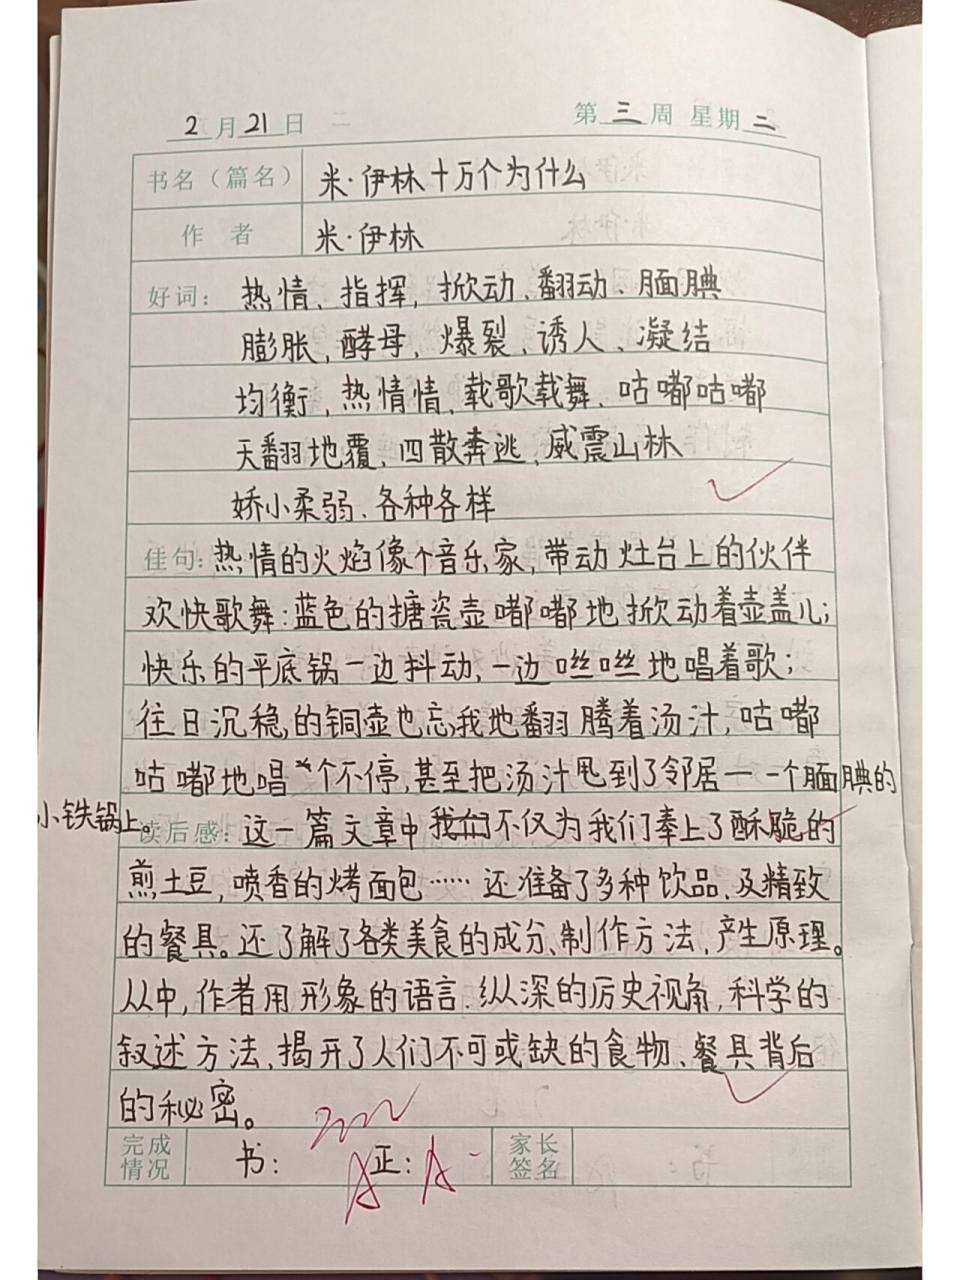 2月21日 第三周 星期二
书名（篇名） 米·伊林十万个为什么
作者 米·伊林
好词： 热情、指挥，掀动、翻动、腼腆
膨胀，酵母，爆裂、诱人、凝结
均衡，热情情、载歌载舞、咕嘟咕嘟
天翻地覆、四散奔逃、威震山林
娇小柔弱、各种各样
佳句：热情的火焰像个音乐家，带动灶台上的伙伴
欢快歌舞：蓝色的搪瓷壶嘟嘟地掀动着壶盖儿；
快乐的平底锅一边抖动，一边咝咝地唱着歌；
往日沉稳的铜壶也忘我地翻腾着汤汁，咕嘟
咕嘟地唱个不停，甚至把汤汁甩到了邻居——一个腼腆的
小铁锅上。
读后感：这一篇文章中我们不仅为我们奉上了酥脆的
煎土豆，喷香的烤面包……还准备了多种饮品、及精致
的餐具。还了解了各类美食的成分、制作方法，产生原理。
从中，作者用形象的语言、纵深的历史视角，科学的
叙述方法、揭开了人们不可或缺的食物、餐具背后
的秘密。
完成情况 书：A 正：A- 家长签名